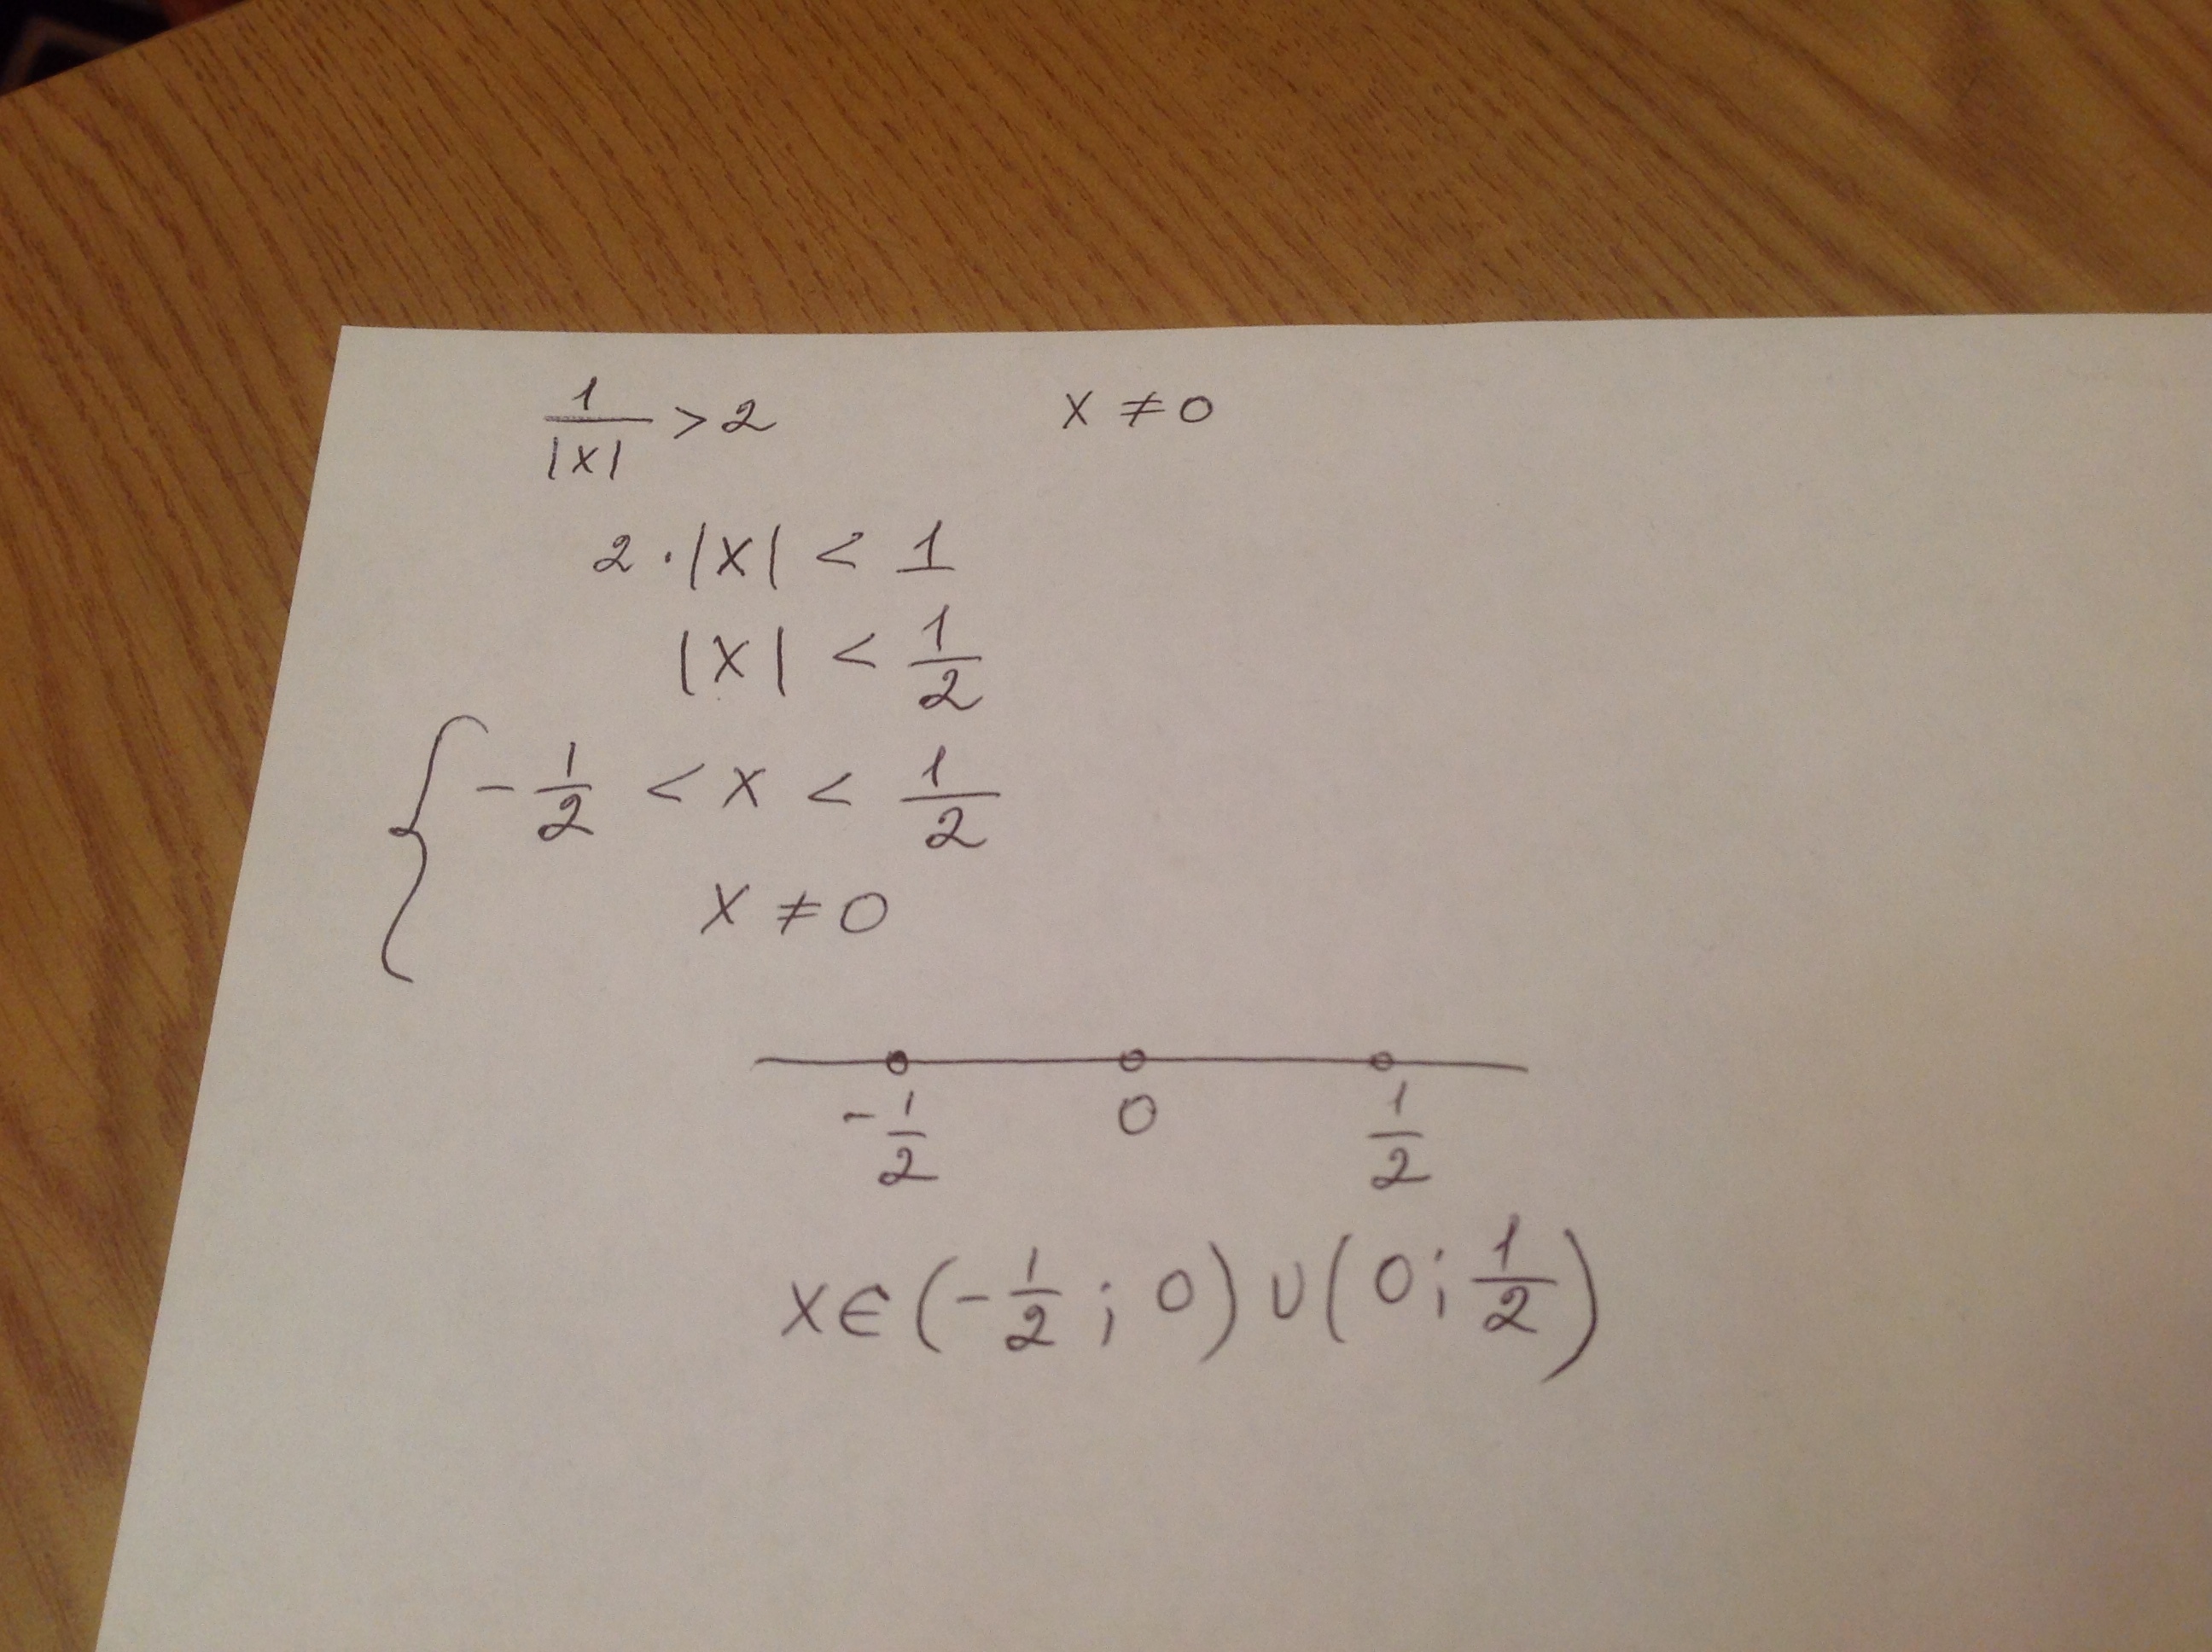 1/|x| > 2    x ≠ 0
2 · |x| < 1
|x| < 1/2
{ -1/2 < x < 1/2
x ≠ 0
-1/2    0    1/2
x ∈ (-1/2 ; 0) ∪ (0 ; 1/2)